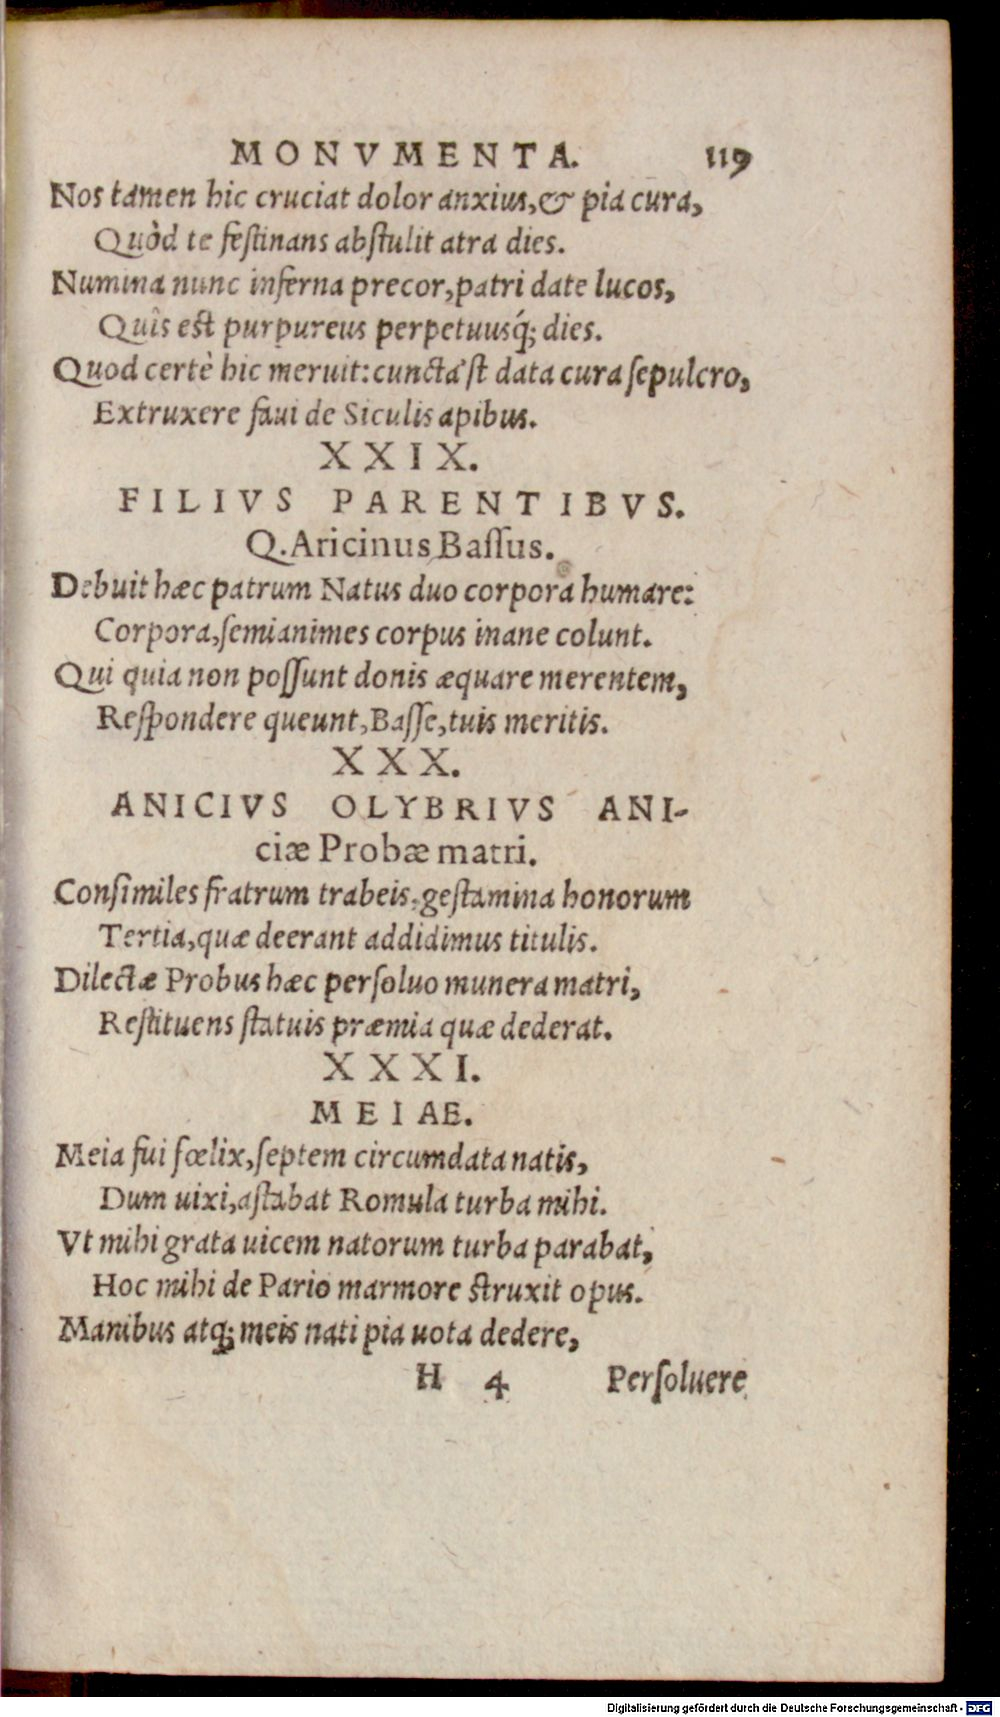 MONVMENTA. 119
Nos tamen hic cruciat dolor anxius, & pia cura,
Quòd te feſtinans abſtulit atra dies.
Numina nunc inferna precor, patri date lucos,
Quîs eſt purpureus perpetuusq́; dies.
Quod certè hic meruit: cuncta'ſt data cura ſepulcro,
Extruxere faui de Siculis apibus.
XXIX.
FILIVS PARENTIBVS.
Q. Aricinus Baſſus.
Debuit hæc patrum Natus duo corpora humare:
Corpora, ſemianimes corpus inane colunt.
Qui quia non poſſunt donis æquare merentem,
Reſpondere queunt, Baſſe, tuis meritis.
XXX.
ANICIVS OLYBRIVS ANI-
ciæ Probæ matri.
Conſimiles fratrum trabeis, geſtamina honorum
Tertia, quæ deerant addidimus titulis.
Dilectæ Probus hæc perſoluo munera matri,
Reſtituens ſtatuis præmia quæ dederat.
XXXI.
MEIAE.
Meia fui fœlix, ſeptem circumdata natis,
Dum uixi, aſtabat Romula turba mihi.
Vt mihi grata uicem natorum turba parabat,
Hoc mihi de Pario marmore ſtruxit opus.
Manibus atq; meis nati pia uota dedere,
H 4 Perſoluere
Digitalisierung gefördert durch die Deutsche Forschungsgemeinschaft - DFG